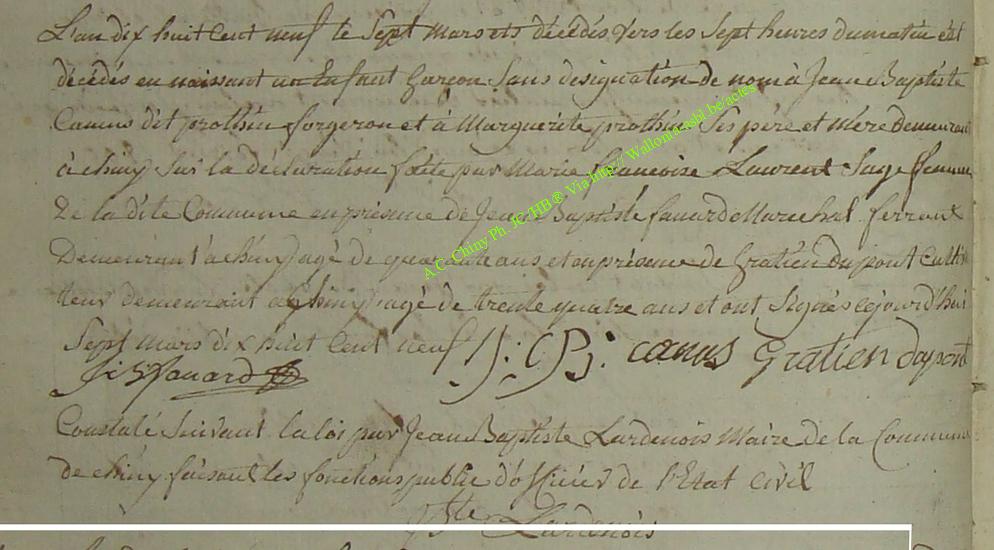 L'an dix huit Cent neuf le Sept Mars est décédés Vers les Sept heures dumatin est
décédés en naissant un Enfant Garçon Sans designation de nom à Jean Baptiste
Camus dit prothin forgeron et à Marguerite prothin Ses père et Mere Demeurant
à chiny Sur la déclaration faite par Marie francoise Laurent Sage femme
De la dite Commune en présence de Jean Baptiste fauard Marechal ferrant
Demeurant à chiny agé de quarante ans et en présence de Gratien Dupont Culti
teur demeurant a Chiny agé de trente quatre ans et ont Signés cejourd'hui
Sept mars dix huit Cent neuf J: B: camus Gratien dupont
J B fauard
Constalé Suivant la loi par Jean Baptiste Lardenois Maire de la Commune
de chiny faisant les fonctions public d'officier de l'Etat Civil
Bte Lardenois
A.C. Chiny Ph. JC-HB ® Via http:// Wallonia-asbl.be/actes